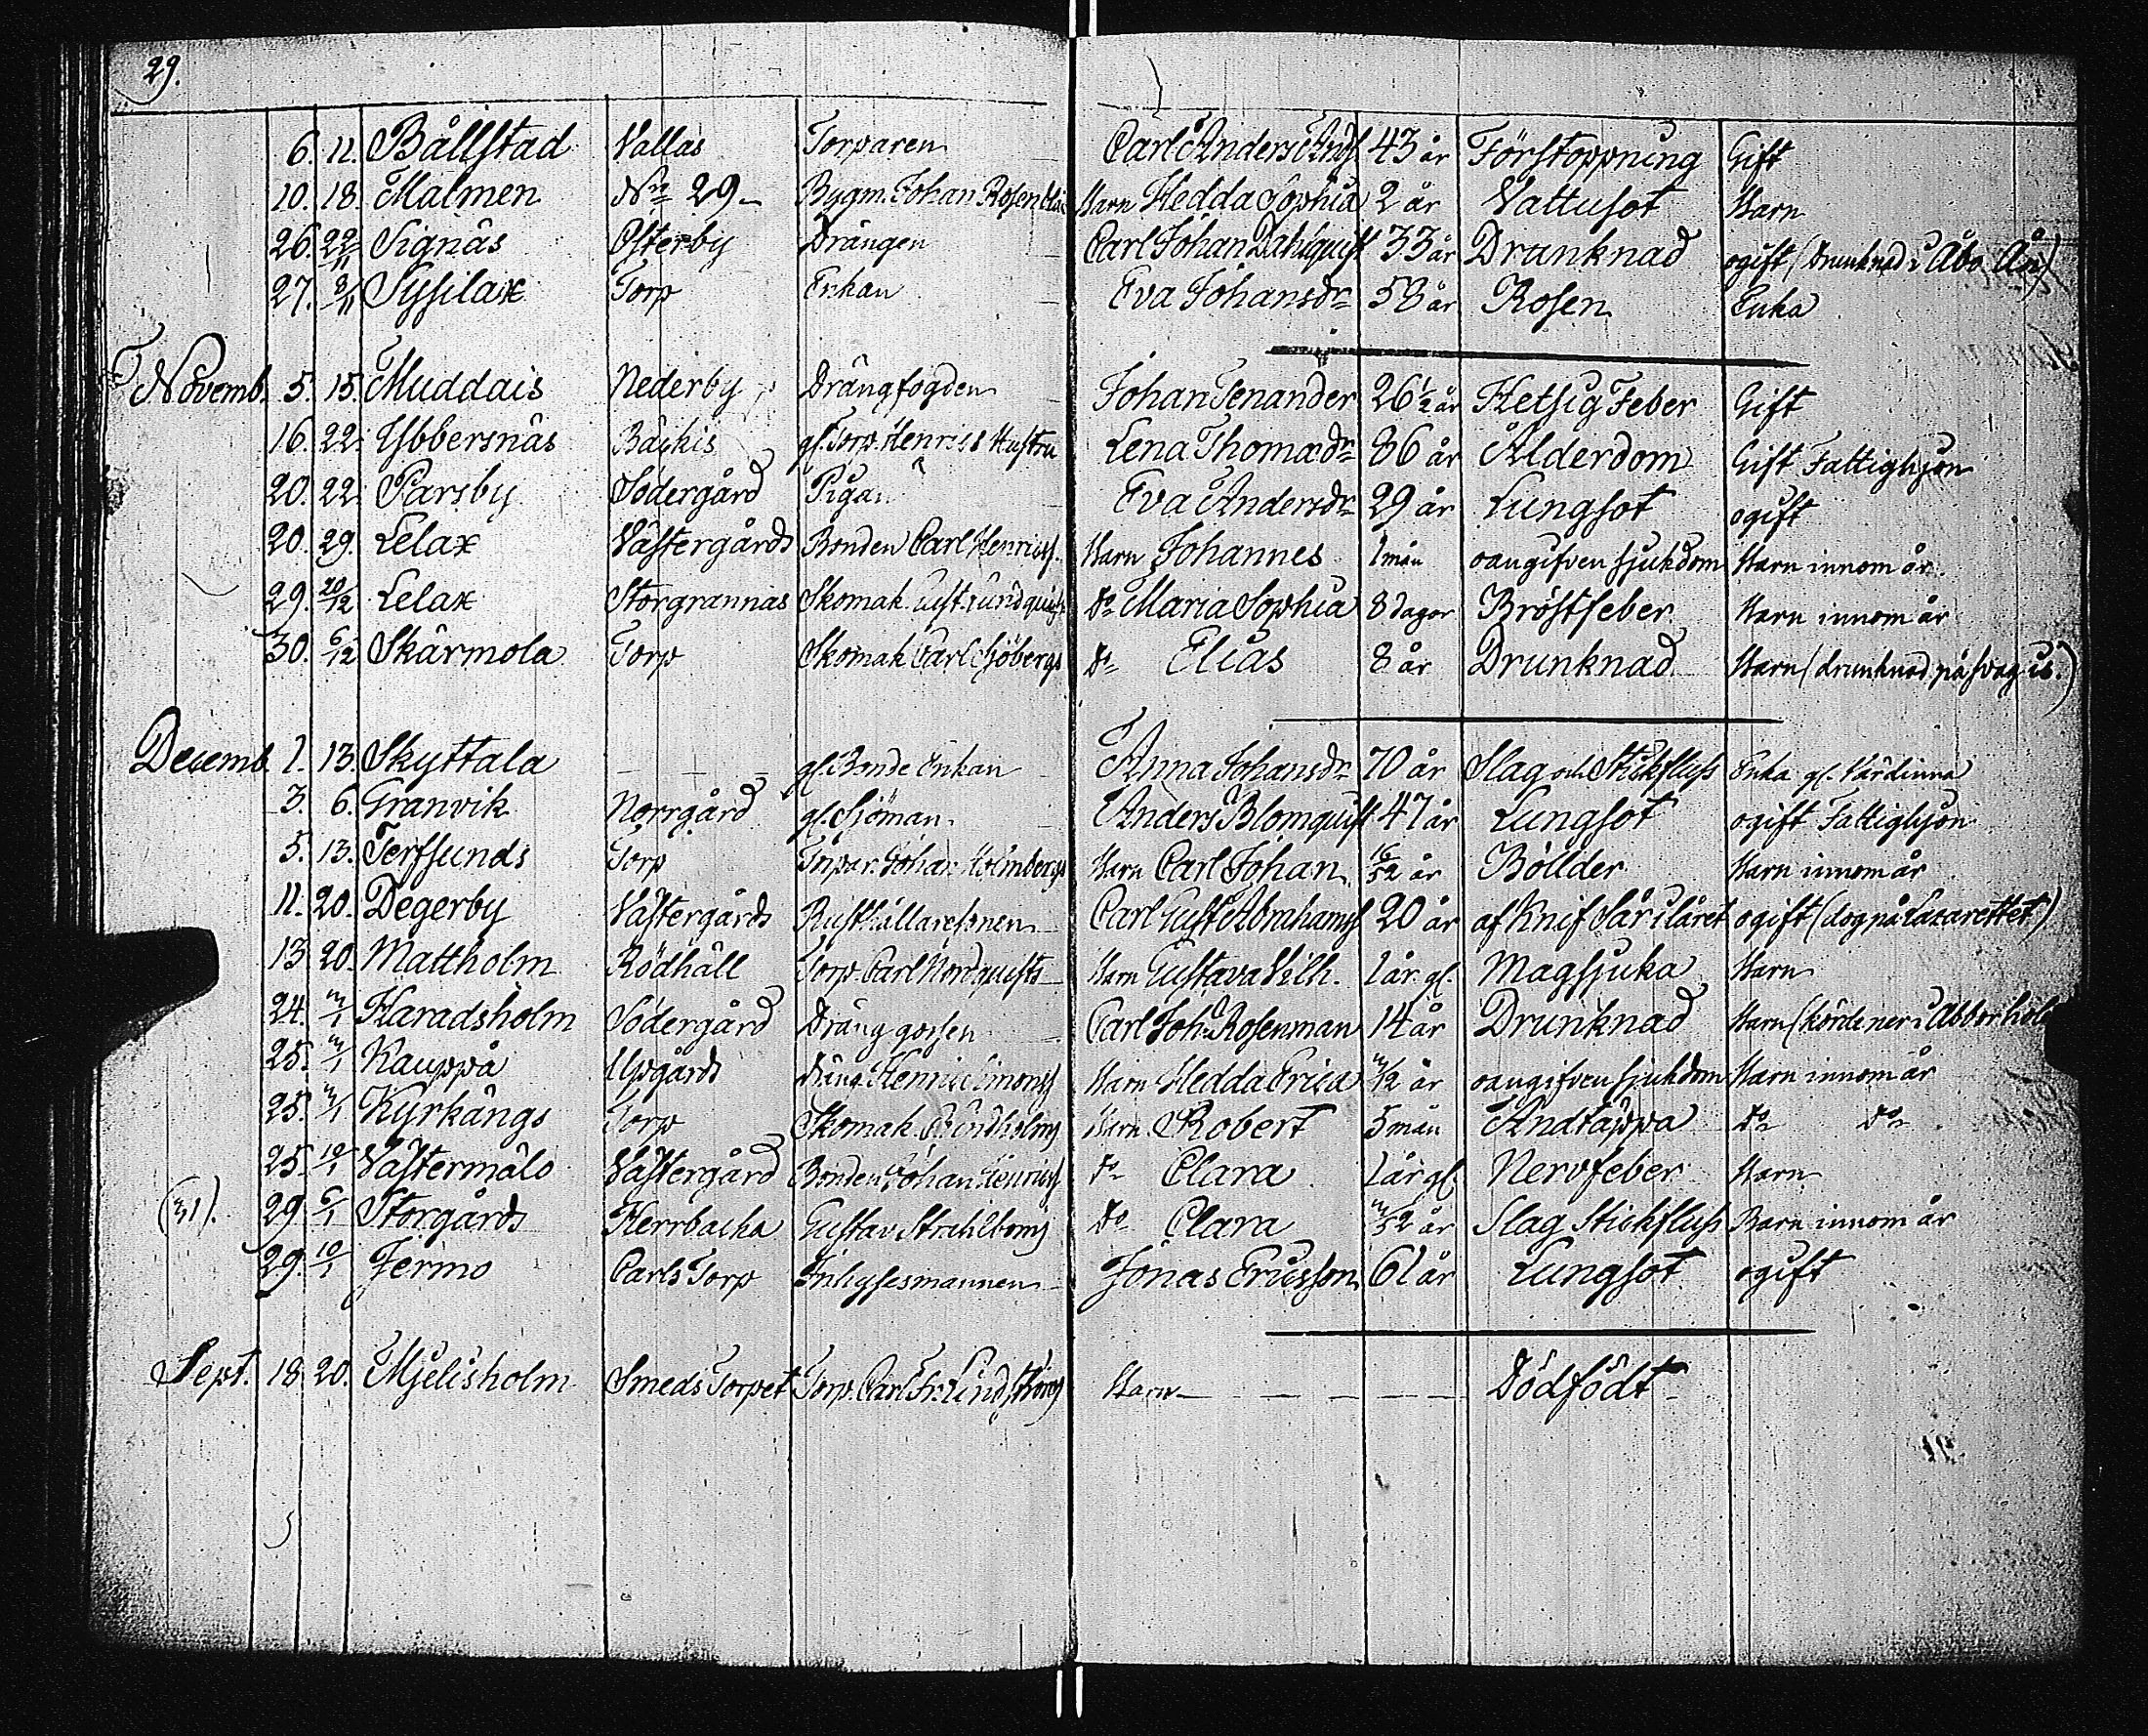 29.
6. 11. Bållstad Vallas Torparen Carl Anders Andss 43 år Förstoppning Gift
10. 18. Malmen No 29 Bygm. Johan Rosenblad Barn Hedda Sophia 2 år Vattusot Barn
26. 22/11 Signäs Österby Drängen Carl Johan Dahlquist 33 år Drunknad ogift (drunknad i Åbo Å)
27. 8/11 Sysilax Torp Enkan Eva Johansdr 58 år Rosen Enka
Novemb. 5. 15. Muddais Nederby Drängfogden Johan Tenander 26 1/2 år Hetsig Feber Gift
16. 22. Ybbersnäs Bäckis gl. Torp. Henrics Hustru Lena Thomædr 86 år Ålderdom Gift Fattighjon
20. 22. Parsby Södergård Pigan Eva Andersdr 29 år Lungsot ogift
20. 29. Lelax Västergårds Bonden Carl Henricss. Barn Johannes 1 mån oangifven sjukdom Barn innom år.
29. 20/12 Lelax Storgrannas Skomak. Gust. Lundquists Do Maria Sophia 8 dagar Bröstfeber Barn innom år
30. 6/12 Skärmola Torp Skomak Carl Sjöbergs Do Elias 8 år Drunknad Barn (drunknad på svag is.)
Decemb. 1. 13. Skyttala gl. Bonde Enkan Anna Johansdr 70 år Slag och Stickfluss Enka gl. Värdinna
3. 6. Granvik Norrgård gl. Sjöman Anders Blomquist 47 år Lungsot ogift Fattighjon
5. 13. Terfsunds Torp Johan Holmbergs Barn Carl Johan 16/52 år Bölder Barn innom år
11. 20. Degerby Västergårds Rusthållaresonen Carl Gust Abrahamss 20 år af Knif Sår i låret ogift (dog på Lazarettet)
13 20. Mattholm Rödhäll Torp. Carl Nordquists Barn Gustava Vilh. 1 år gl. Magsjuka Barn
24. 3/1 Haradsholm Södergård Dräng gossen Carl Joh. Rosenman 14 år Drunknad Barn (körde ner i Abborhol
25. 3/1 Kauppå Uppgårds Dräng. Henric Simonss Barn Hedda Erica 3/12 år oangifven sjukdom Barn innom år
25. 3/1 Kyrkängs Torp Skomak. Lindholms Barn Robert 5 mån Andtäppa Do Do
25. 10/1 Västermälo Västergård Bonden Johan Henricss Do Clara 1 år gl. Nervfeber Barn
(31). 29. 6/1 Storgårds Herrbacka Gustav Strahlboms Do Clara 3/52 år Slag Stickfluss Barn innom år
29. 10/1 Jermo Carls Torp Inhysesmannen Jonas Ericsson 61 år Lungsot ogift
Sept. 18. 20. Mjelisholm Smeds Torpet Torp. Carl Fr. Lindströms Barn Dödfödt